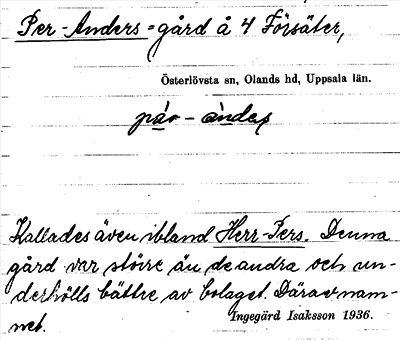 Per-Anders=gård å 4 Försäter,
Österlövsta sn, Olands hd, Uppsala län.
Kallades även ibland Herr-Pers. Denna
gård var större än de andra och un-
derhölls bättre av bolaget. Därav nam-
net.
Ingegärd Isaksson 1936.